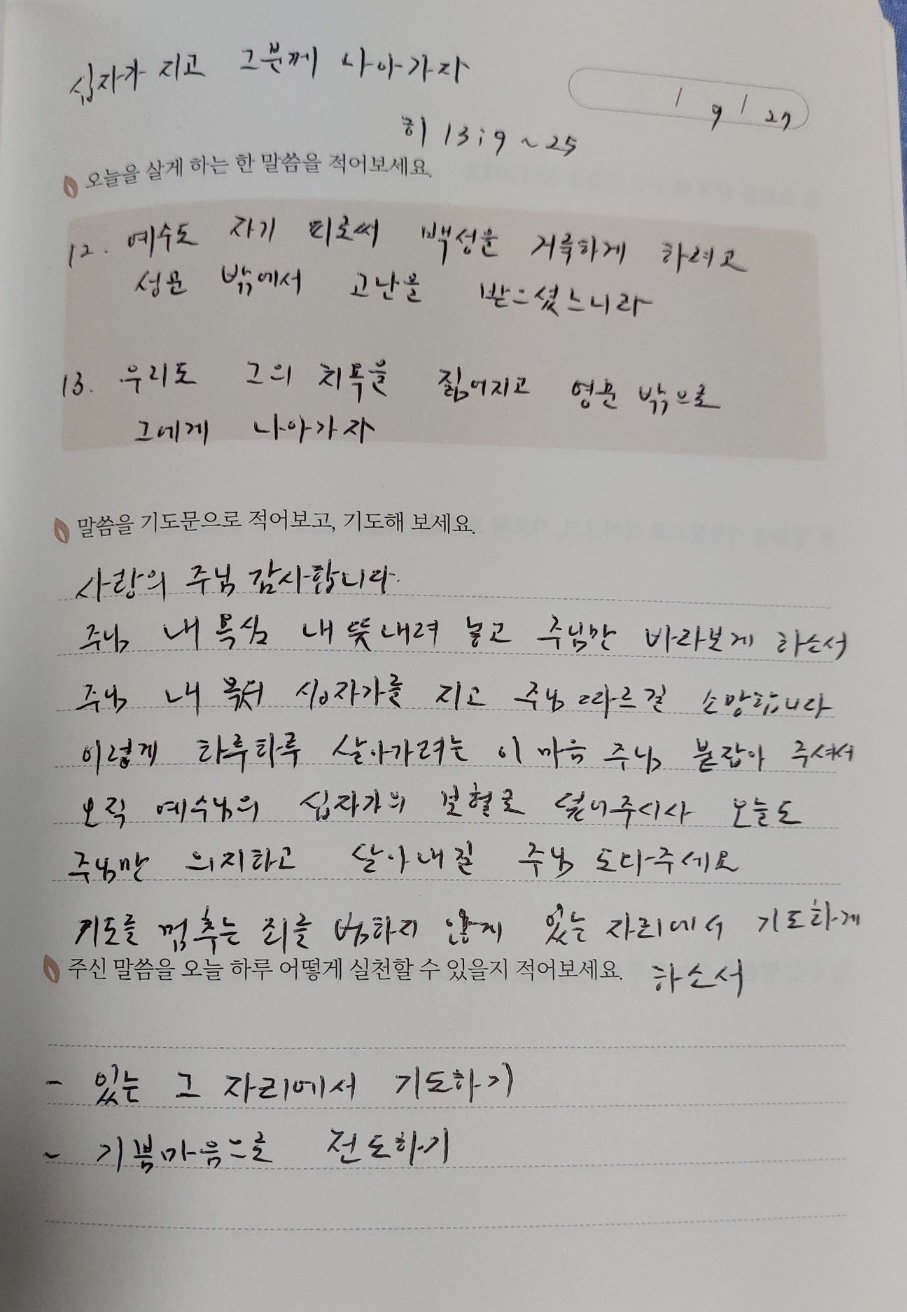 십자가 지고 그분께 나아가자
/ 9 / 27
히 13:9 ~ 25
오늘을 살게 하는 한 말씀을 적어보세요.
12. 예수도 자기 피로써 백성을 거룩하게 하려고
성문 밖에서 고난을 받으셨느니라
13. 우리도 그의 치욕을 짊어지고 영문 밖으로
그에게 나아가자
말씀을 기도문으로 적어보고, 기도해 보세요.
사랑의 주님 감사합니다.
주님 내 욕심 내 뜻 내려 놓고 주님만 바라보게 하소서
주님 내 십자가를 지고 주님 따르길 소망합니다
이렇게 하루하루 살아가려는 이 마음 주님 붙잡아 주셔서
오직 예수님의 십자가의 보혈로 덮어주시사 오늘도
주님만 의지하고 살아내길 주님 도와주세요
기도를 멈추는 죄를 범하지 않게 있는 자리에서 기도하게
하소서
주신 말씀을 오늘 하루 어떻게 실천할 수 있을지 적어보세요.
- 있는 그 자리에서 기도하기
- 기쁨마음으로 전도하기